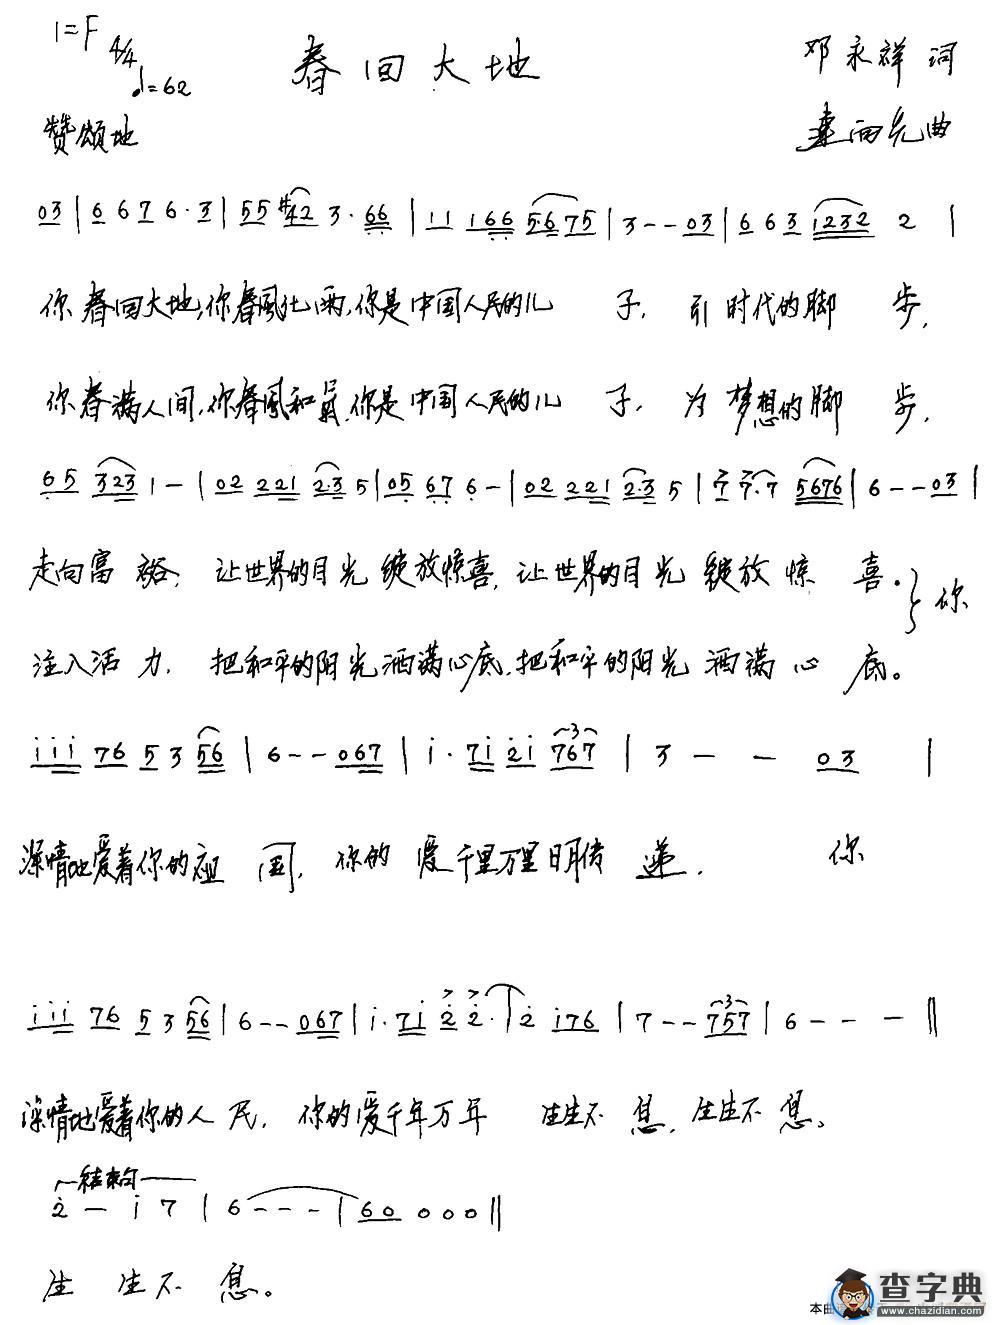 1=F 4/4
♩=62
春回大地
邓永祥 词
曲
赞颂地
03 | 6 6 7 6·3 | 55 #42 3·66 | ii i66 5675 | 3--03 | 6 6 3 i232 2 |
你春回大地,你春风化雨,你是中国人民的儿 子, 引时代的脚 步,
你春满人间,你春风和 你是中国人民的儿 子, 为梦想的脚 步,
65 323 1- | 02 221 2·3 5 | 05 67 6- | 02 221 2·3 5 | 7 7·7 5676 | 6--03 |
走向富 裕, 让世界的目光绽放惊喜, 让世界的目光 绽放惊 喜. 你
注入活 力, 把和平的阳光洒满心底,把和平的阳光 洒满心 底。
iii 76 5 3 56 | 6--067 | i·7i 2i 767 | 3 - - 03 |
深情地爱着你的祖 国, 你的 爱千里万里 传 递, 你
iii 76 5 3 56 | 6--067 | i·7i 2 2· | 2 i76 | 7--757 | 6--- ||
深情地爱着你的人 民, 你的爱千年万年 生生不 息, 生生不 息。
结束句
2 - i 7 | 6--- | 60 0 0 0 ||
生 生不 息。
查字典
www.chazidian.com
本曲